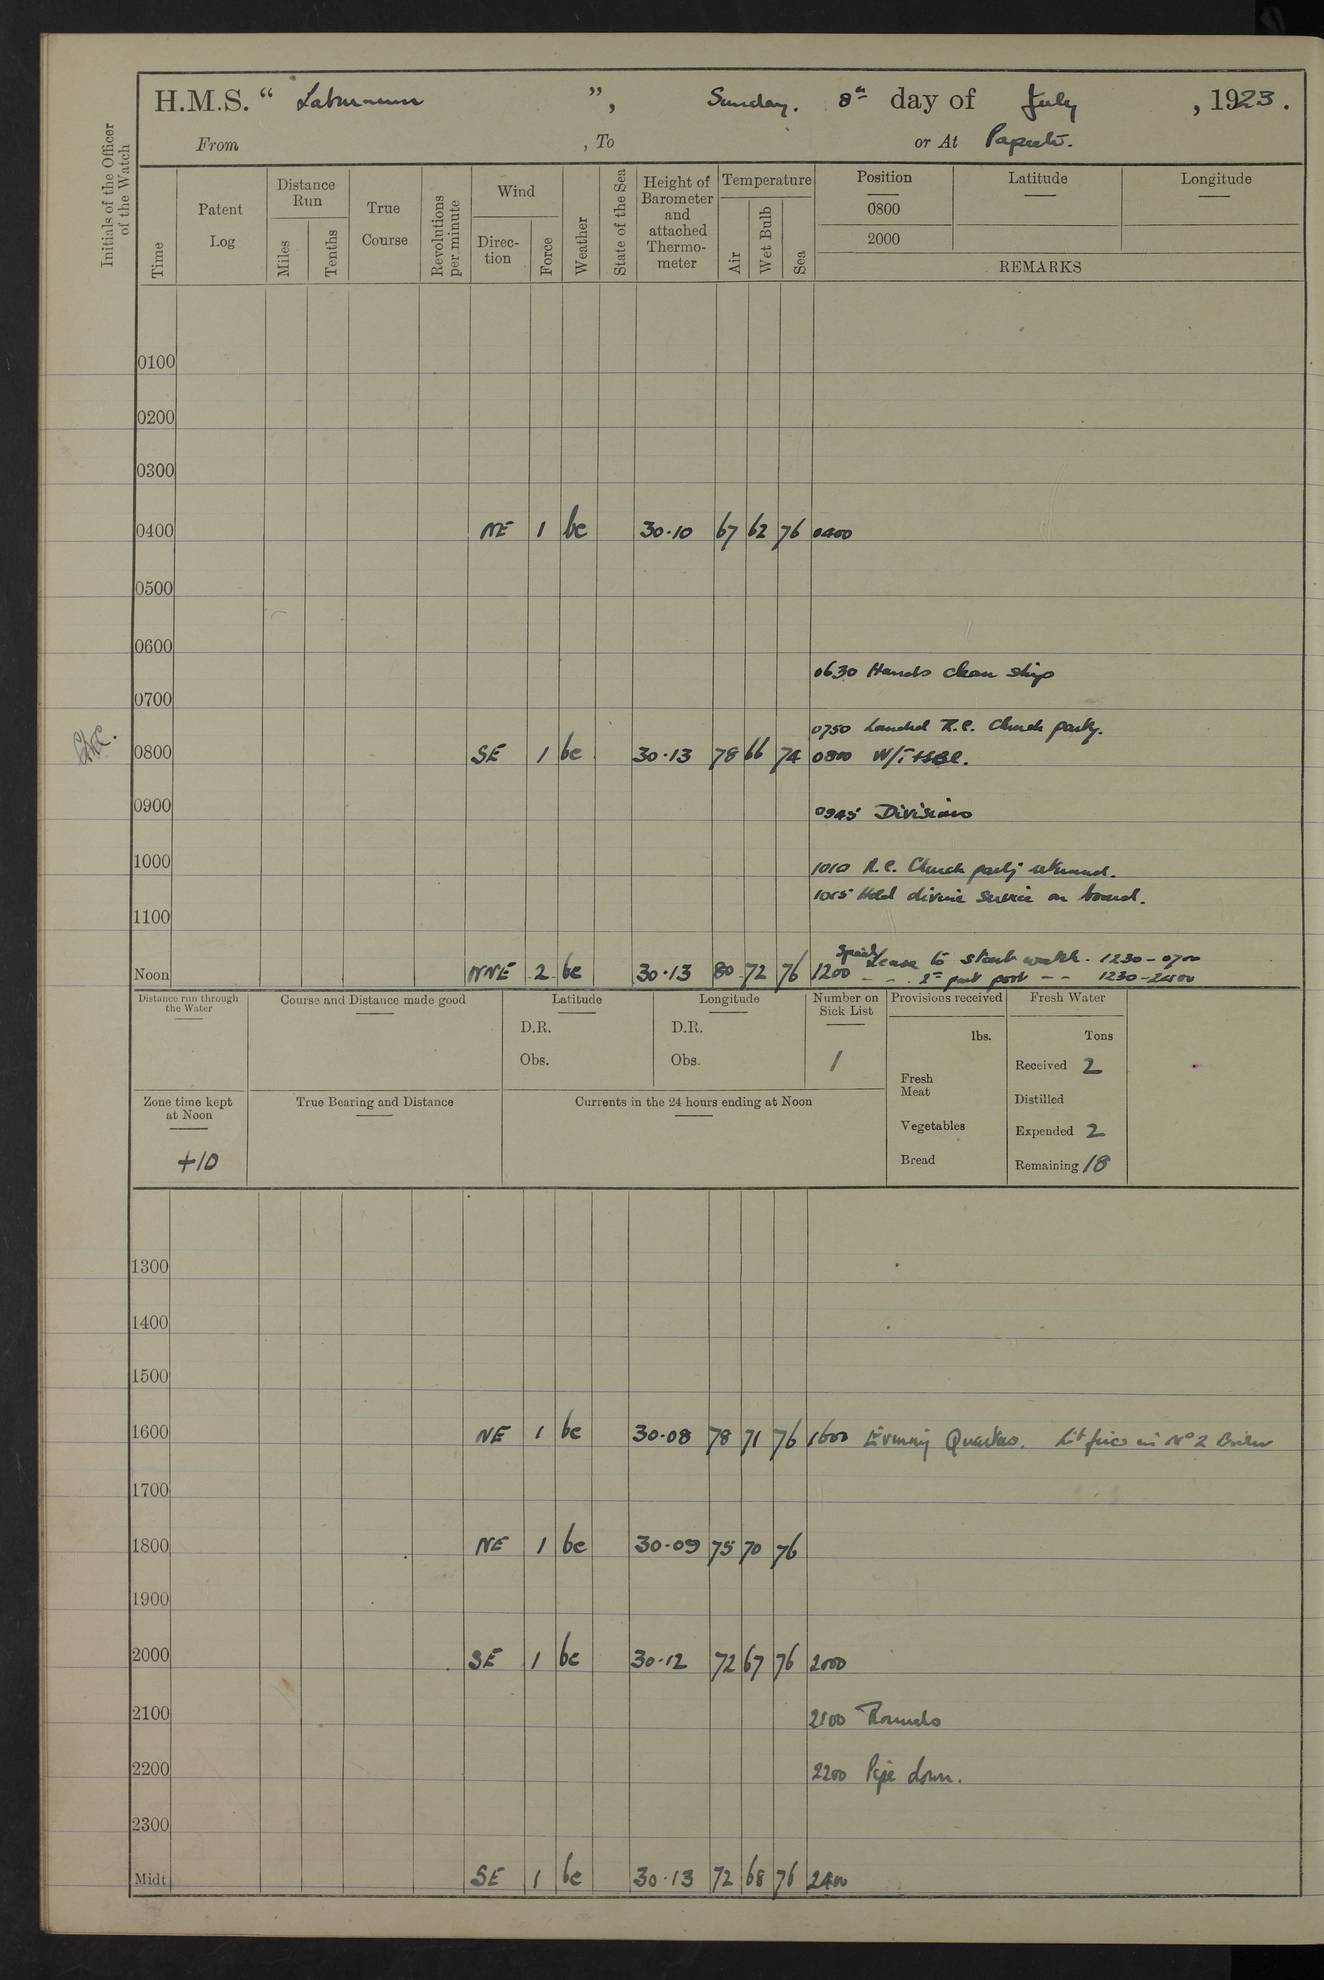 H.M.S. “ Laburnum ”, Sunday. 8th day of July , 1923 .
From , To or At Papeete.
Initials of the Officer of the Watch
Time
Patent Log
Distance Run
Miles
Tenths
True Course
Revolutions per minute
Wind
Direc-tion
Force
Weather
State of the Sea
Height of Barometer and attached Thermo-meter
Temperature
Air
Wet Bulb
Sea
Position Latitude Longitude
0800
2000
REMARKS
0100
0200
0300
0400 NE 1 bc 30·10 67 62 76 0400
0500
0600
0630 Hands clean ship
0700
0750 Landed R.C. Church party.
0800 SE 1 bc 30·13 78 66 74 0800 W/T
0900
0945 Divisions
1000
1010 R.C. Church party returned.
1015 Held divine service on board.
1100
Special Leave to starbd watch. 1230 – 0700
Noon NNE 2 bc 30·13 80 72 76 1200 – – . 1st part port – – 1230 – 2400
Distance run through the Water
Course and Distance made good
Latitude
D.R.
Obs.
Longitude
D.R.
Obs.
Number on Sick List
1
Provisions received
lbs.
Fresh Meat
Vegetables
Bread
Fresh Water
Tons
Received 2
Distilled
Expended 2
Remaining 18
Zone time kept at Noon
+10
True Bearing and Distance
Currents in the 24 hours ending at Noon
1300
1400
1500
1600 NE 1 bc 30·08 78 71 76 1600 Evening Quarters. Lit fires in No 2 Boiler
1700
1800 NE 1 bc 30·09 75 70 76
1900
2000 SE 1 bc 30·12 72 67 76 2000
2100
2100 Rounds
2200
2200 Pipe down.
2300
Midt. SE 1 bc 30·13 72 68 76 2400